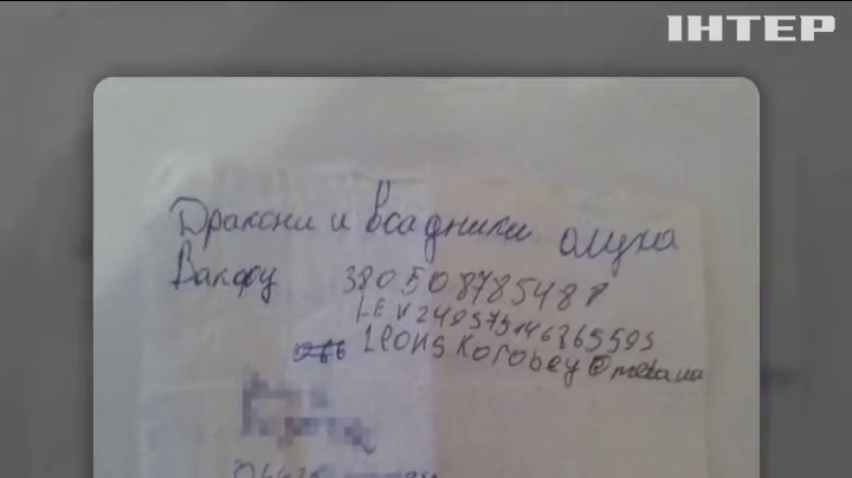 ІНТЕР
Дракони и всадники олуха
Вакфу 380508785488
LEV249575146865595
066 leonskorobey@meta.ua